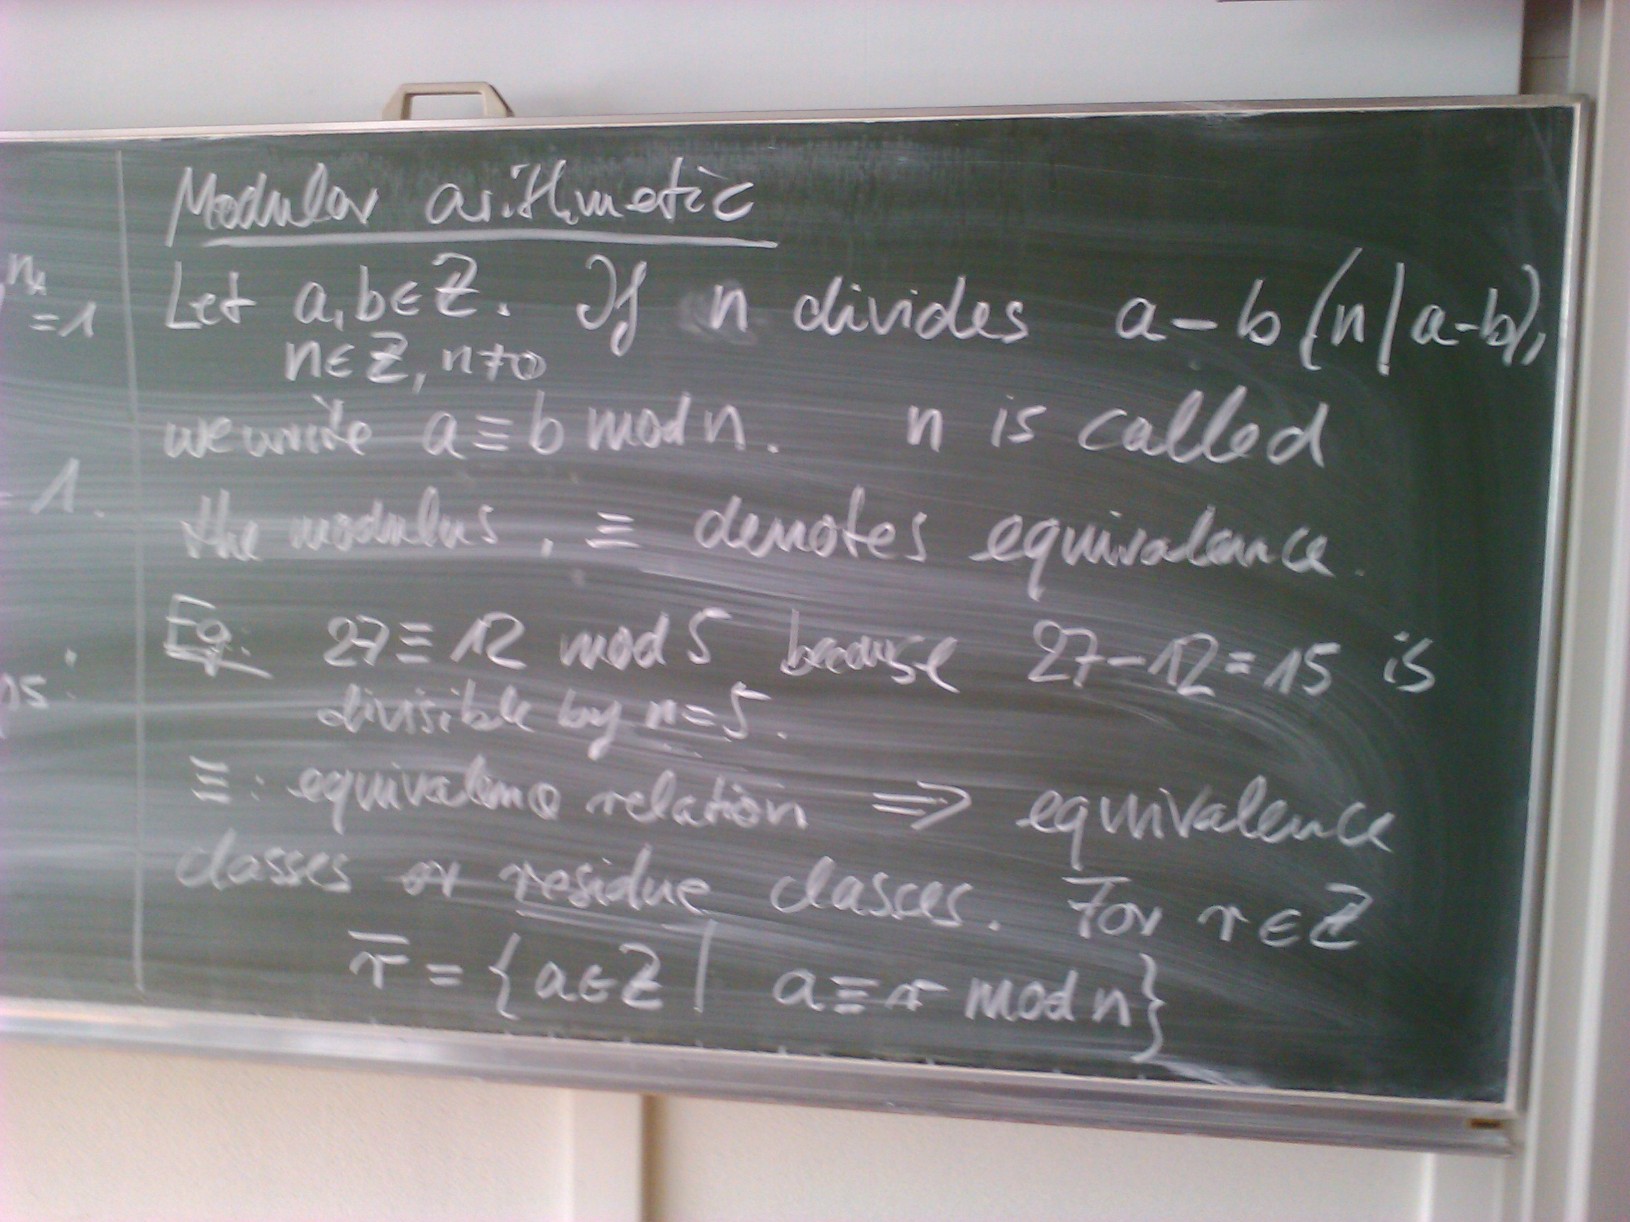 Modular arithmetic
Let a, b ∈ ℤ. If n divides a - b (n | a-b),
n ∈ ℤ, n ≠ 0
we write a ≡ b mod n. n is called
the modulus, ≡ denotes equivalence.
Eg: 27 ≡ 12 mod 5 because 27-12=15 is
divisible by n=5.
≡: equivalence relation ⇒ equivalence
classes or residue classes. For r ∈ ℤ
r̅ = {a ∈ ℤ | a ≡ r mod n}
=1
1.